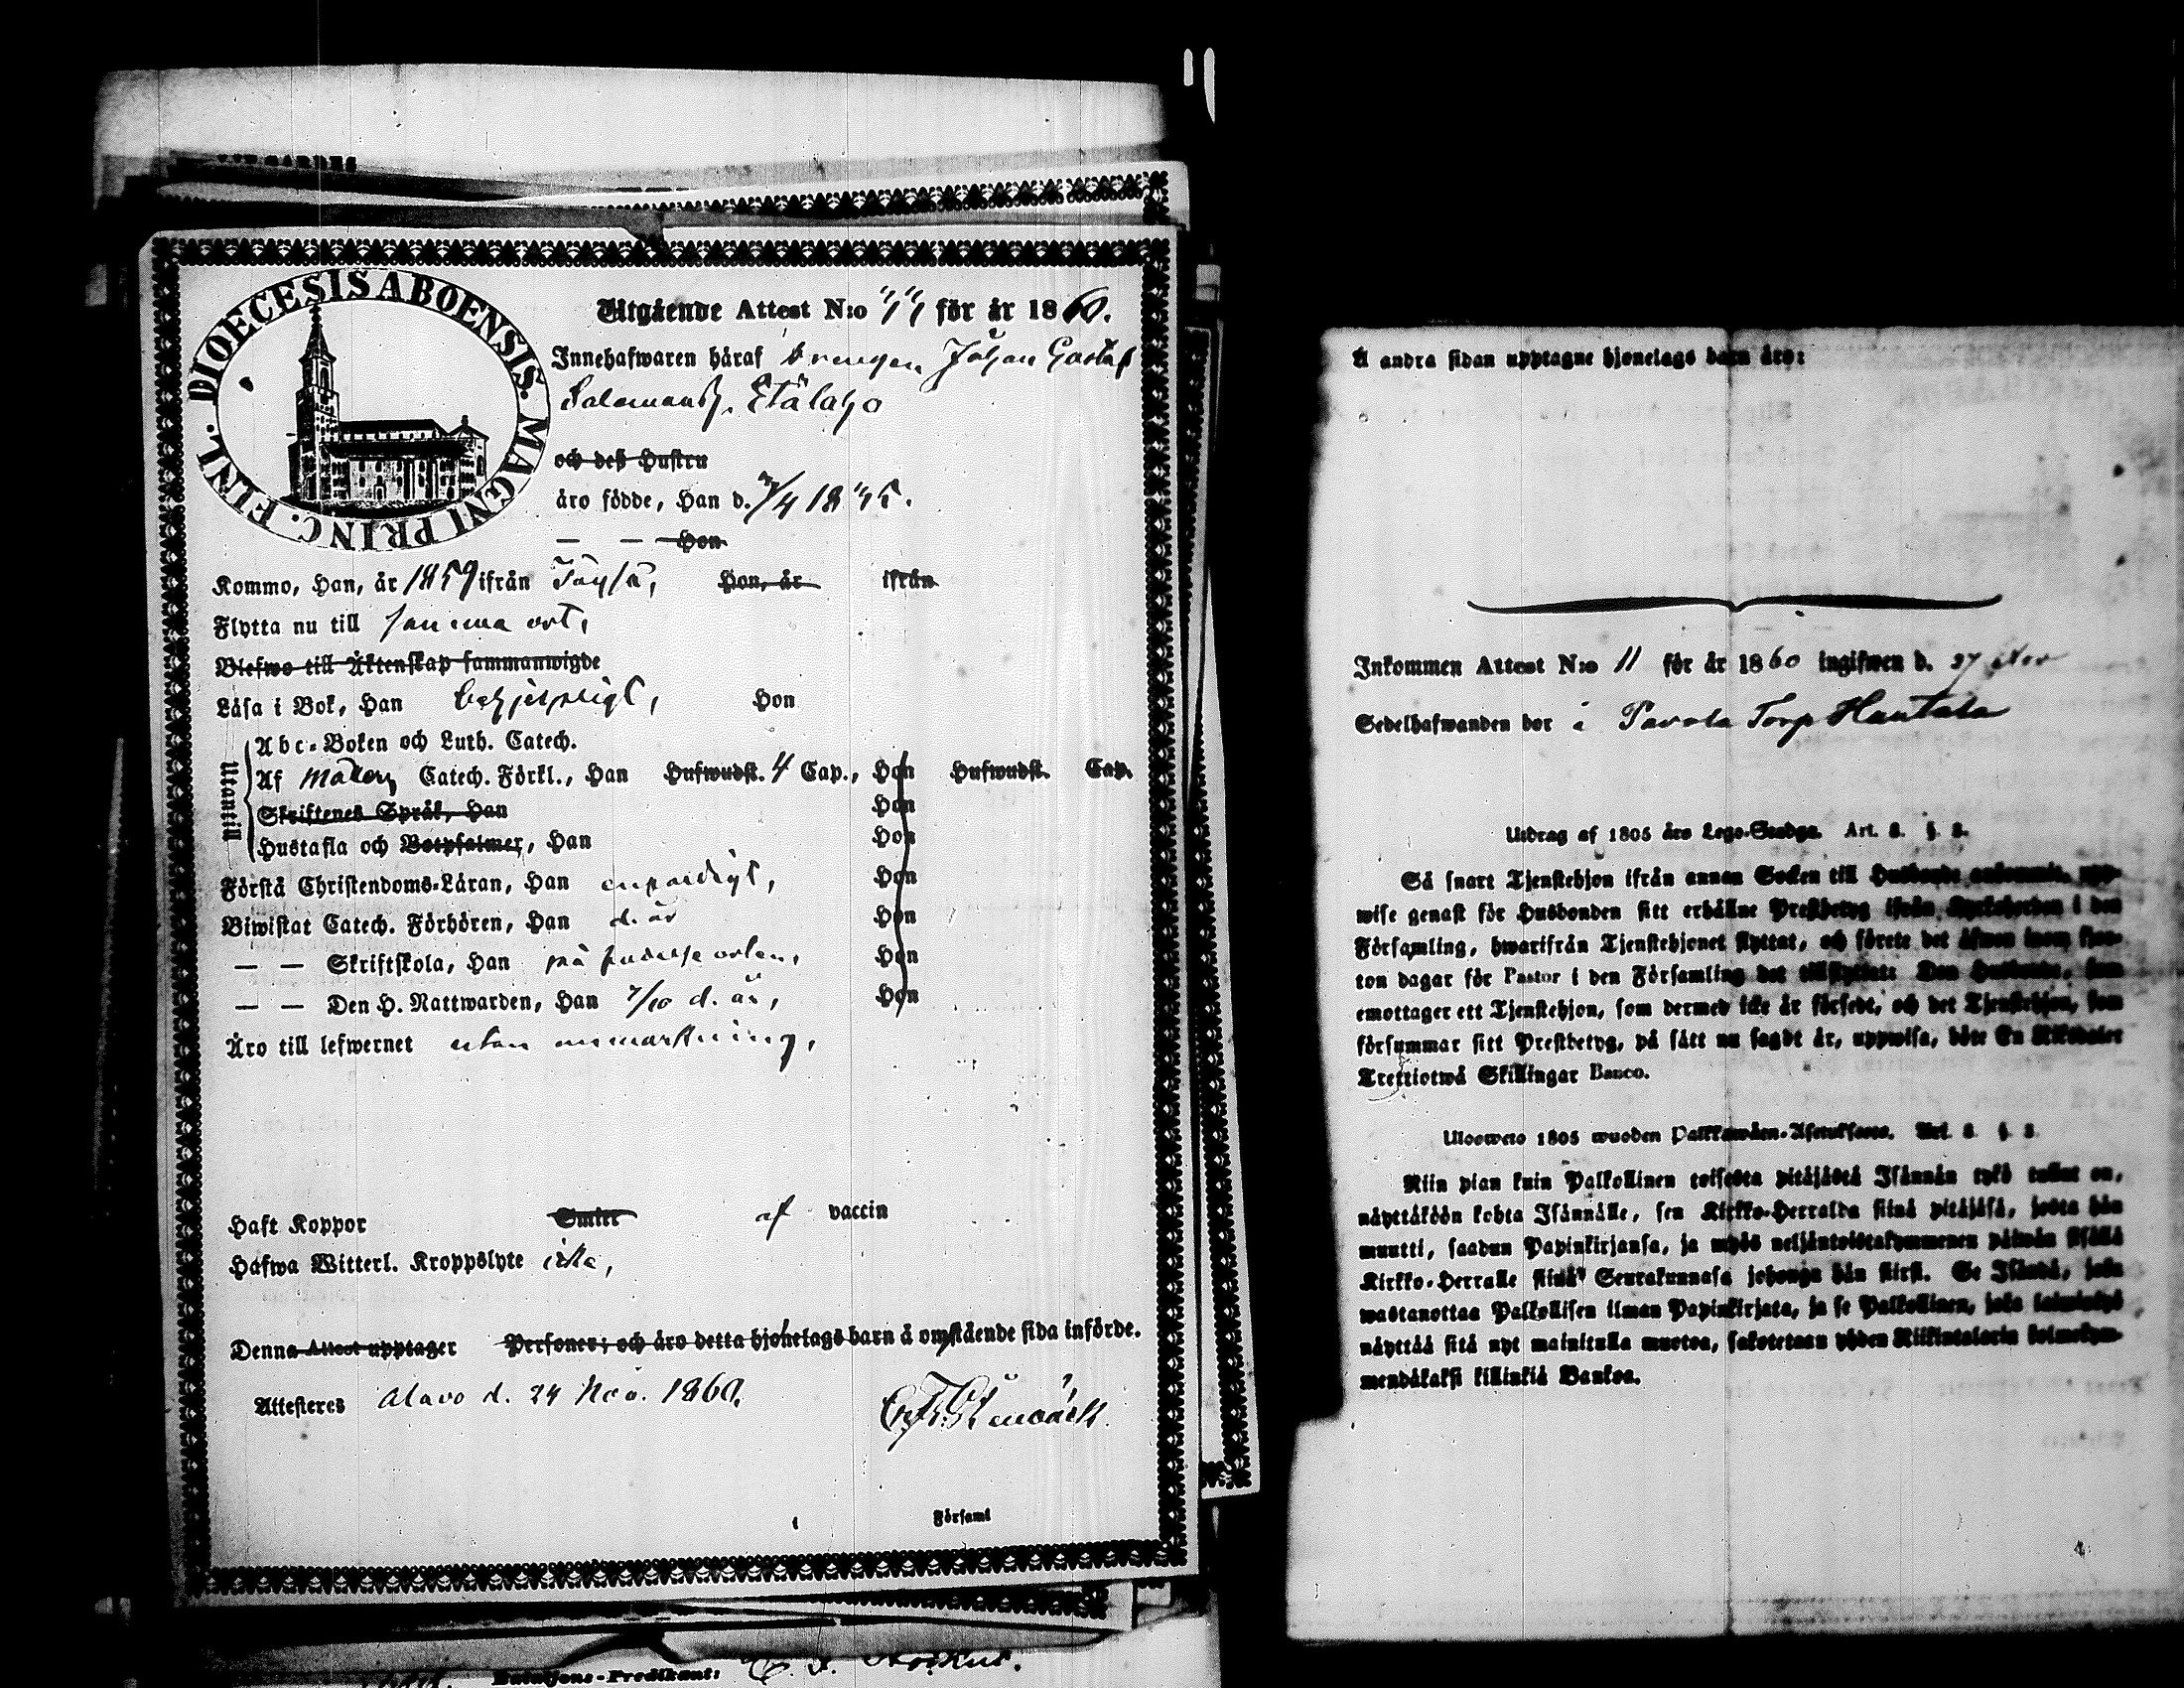 DIOECESIS ABOENSIS. MAGNI PRINC. FINL.
Utgående Attest N:o 44 för år 1860.
Innehafwaren häraf drengen Johan Gustaf
Salomonss. Etälaho
och deß Hustru
äro födde, Han d. 3/4 1845.
— — Hon
Kommo, Han, år 1859 ifrån Töysä, Hon, år ifrån
Flytta nu till samma ort,
Blefwo till Äktenskap sammanwigde
Läsa i Bok, Han Hon
Utantill
Abc-Boken och Luth. Catech.
Af Catech. Förkl., Han Hufwudst. 4 Cap., Hon Hufwudst. Cap.
Skriftenes Språk, Han Hon
Hustafla och Botpsalmer, Han Hon
Förstå Christendoms-Läran, Han Hon
Biwistat Catech. Förhören, Han d. år Hon
— — Skriftskola, Han på födelse orten, Hon
— — Den H. Nattwarden, Han 7/10 d. år, Hon
Äro till lefwernet utan anmärkning,
Haft Koppor Smitt af vaccin
Hafwa Witterl. Kroppslyte icke,
Denna Attest upptager Personer; och äro detta hjonelags barn å omstående sida införde.
Attesteres Alavo d. 24 Nov. 1860.
Församl
Bataljons-Predikant:
Å andra sidan upptagne hjonelags barn äro:
Inkommen Attest N:o 11 för år 1860 ingifwen d. 27 Nov
Sedelhafwanden bor å Pavola Torp Hautala
Utdrag af 1805 års Lego-Stadga. Art. 8. §. 8.
Så snart Tjenstehjon ifrån annan Socken till Husbonde ankommit, upp-
wise genast för Husbonden sitt erhållne Prestbetyg ifrån Kyrkoherden i den
Församling, hwarifrån Tjenstehjonet flyttat, och förete det äfwen inom fjor-
ton dagar för Pastor i den Församling det tillflyttat: Den Husbonde, som
emottager ett Tjenstehjon, som dermed icke är försedt, och det Tjenstehjon, som
försummar sitt Prestbetyg, på sätt nu sagdt är, uppwisa, böte En Riksdaler
Trettiotwå Skillingar Banco.
Ulosweto 1805 wuoden Palkkawäen-Asetuksesta. Art. 8. §. 8.
Niin pian kuin Palkollinen toisesta pitäjästä Isännän tykö tullut on,
näyttäköön kohta Isännälle, sen Kirkko-Herralda siinä pitäjäsä, josta hän
muutti, saadun Papinkirjansa, ja myös neljäntoistakymmenen päiwän sisällä
Kirkko-Herralle siinä Seurakunnasa johonga hän siirsi. Se Isändä, joka
wastanottaa Palkollisen ilman Papinkirjata, ja se Palkollinen, joka laiminlyö
näyttää sitä nyt mainitulla muotoa, sakotetaan yhden Riikintalarin kolmekym-
mendäkaksi killinkiä Bankoa.